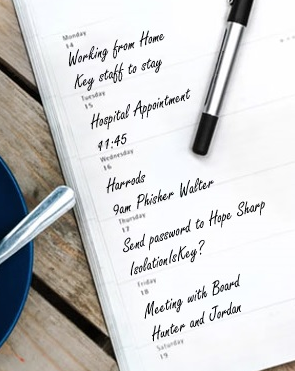 Monday
14
Working from Home
Key staff to stay
Tuesday
15
Hospital Appointment
11:45
Wednesday
16
Harrods
9am Phisher Walter
Thursday
17
Send password to Hope Sharp
IsolationIsKey?
Friday
18
Meeting with Board
Hunter and Jordan
Saturday
19